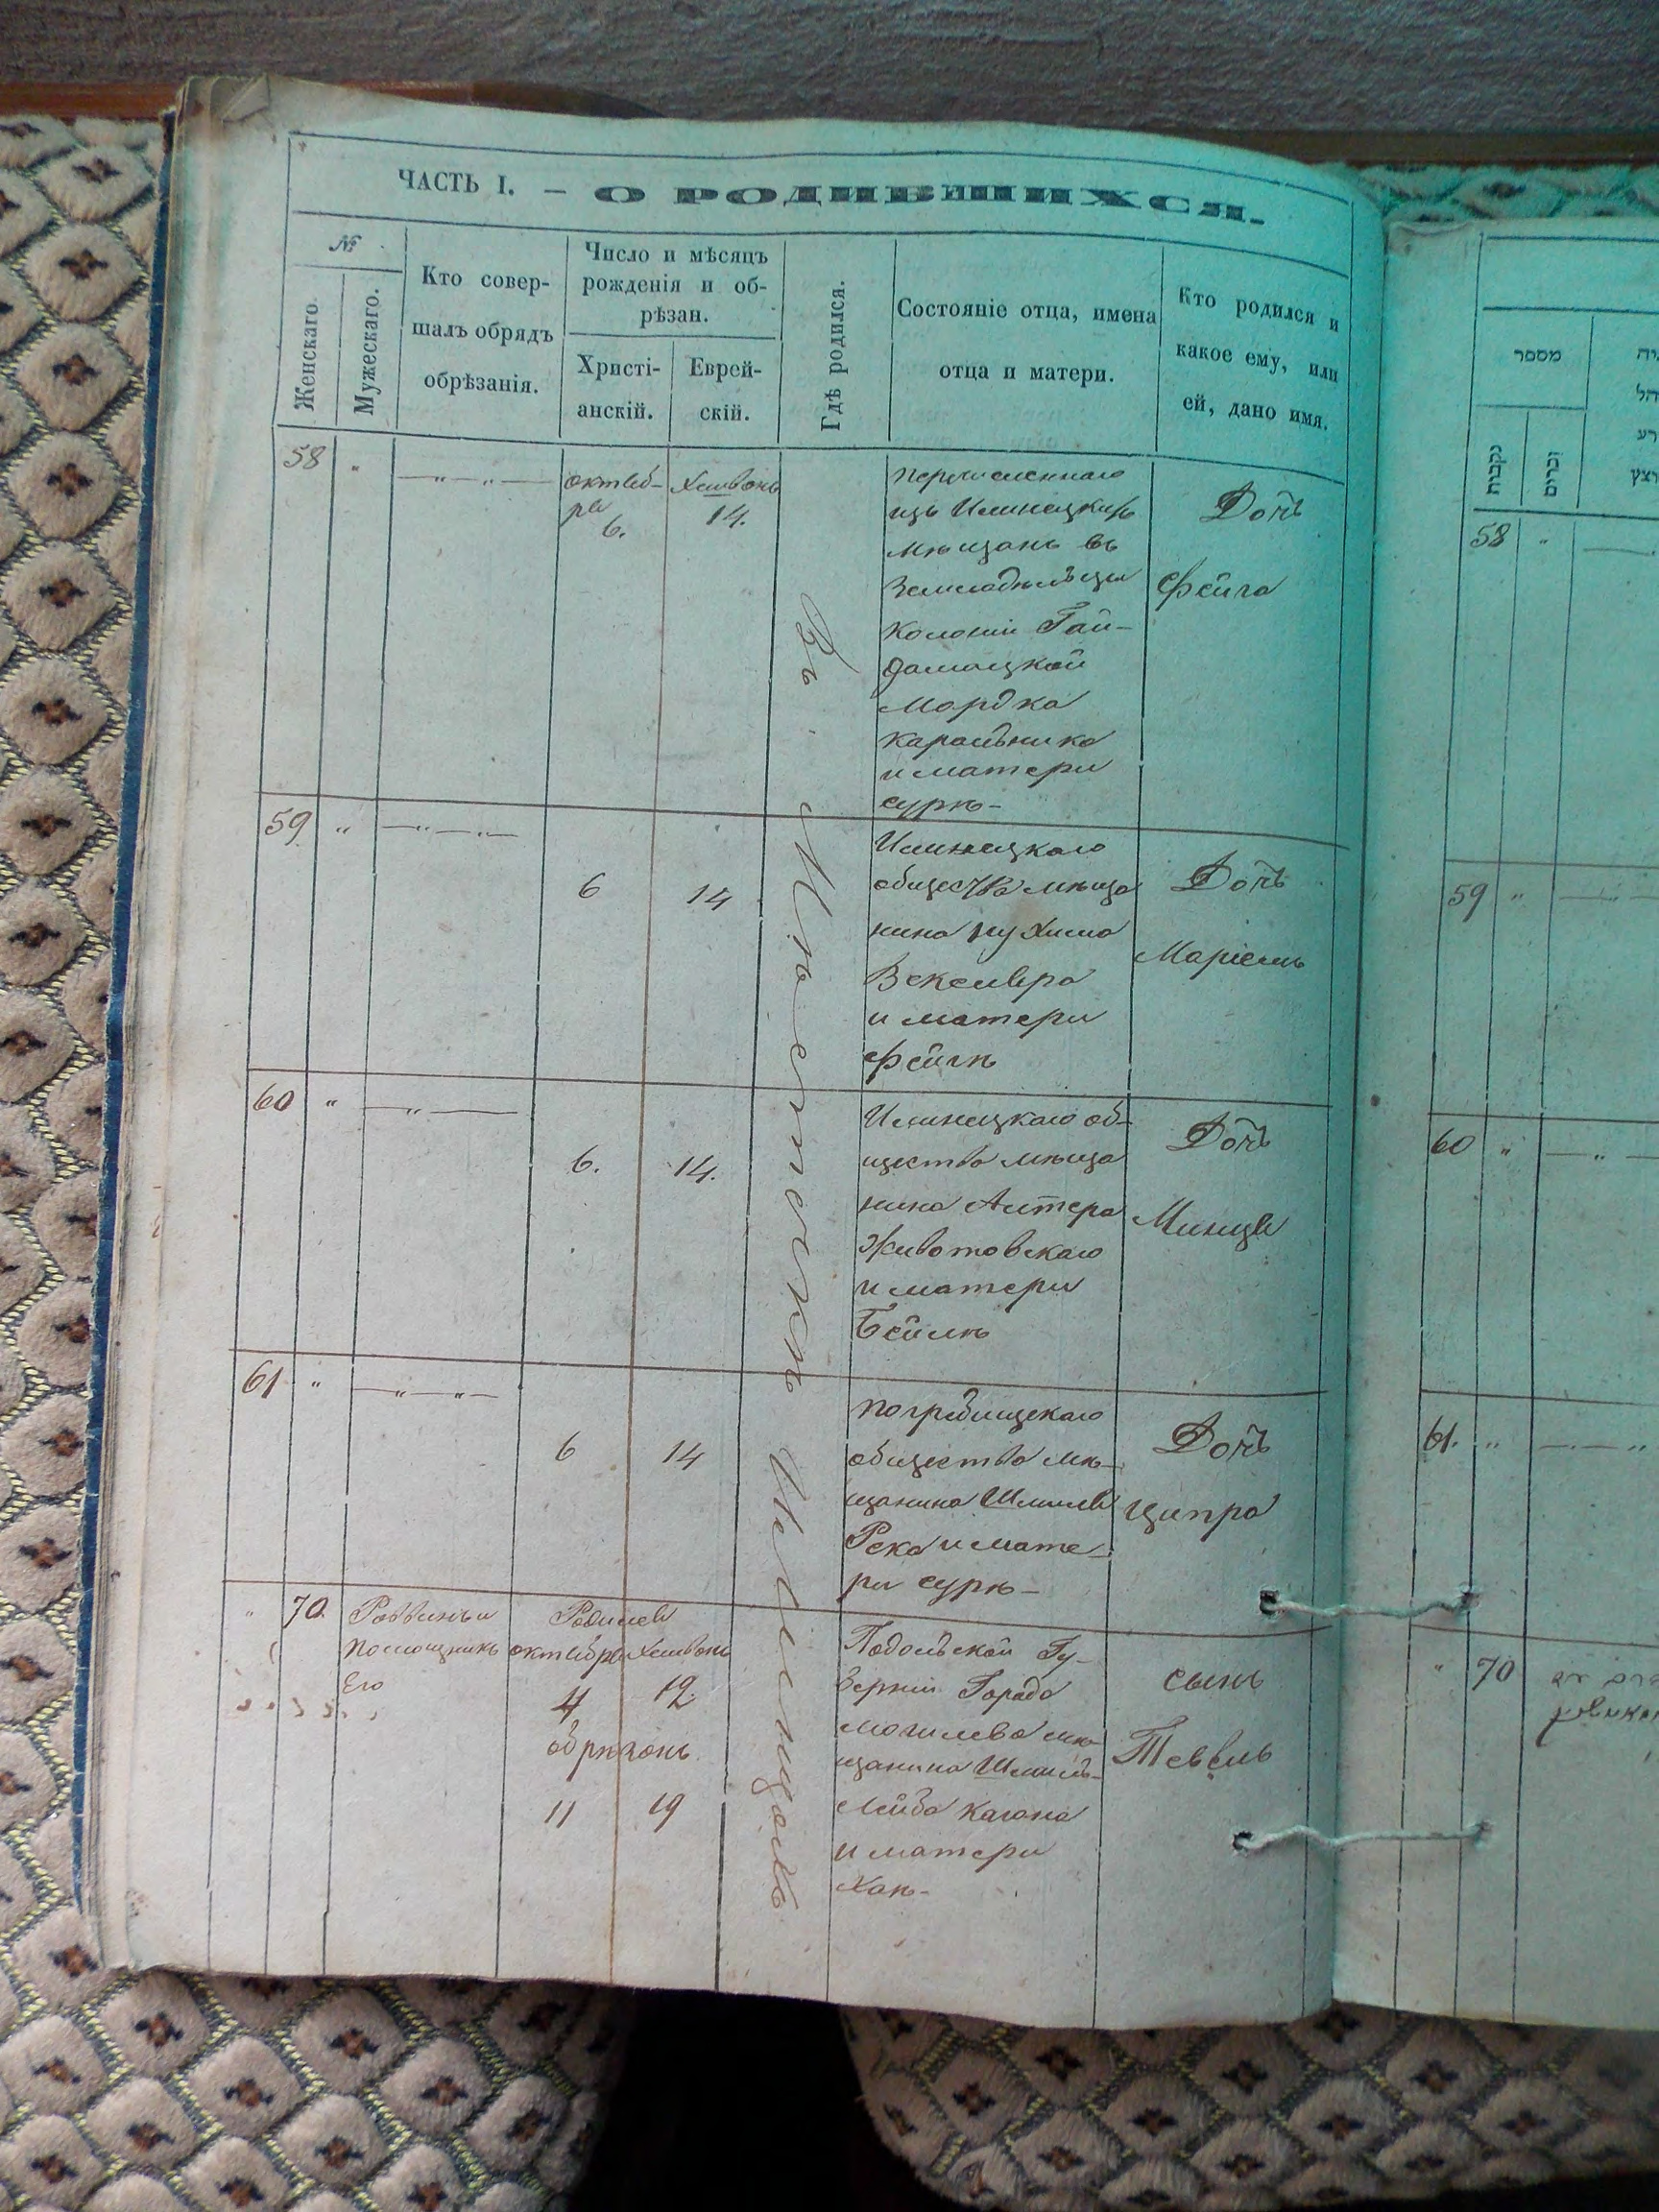 ЧАСТЬ I. – О РОДИВШИХСЯ.
№
Женскаго
Мужескаго.
Кто совер-
шалъ обрядъ
обрѣзанія.
Число и мѣсяцъ
рожденія и об-
рѣзан.
Христі-
анскій.
Еврей-
скій.
Гдѣ родился.
Состояніе отца, имена
отца и матери.
Кто родился и
какое ему, или
ей, дано имя.
Въ Мѣстечкѣ Илинцахъ
58 " —"—"—
октяб-
ря
6.
Хешвонъ
14.
перечисленнаго
изъ Илинецкихъ
мѣщанъ въ
Земледѣльцы
колоніи Гай-
дамацкой
Мордка
Каральника
и матери
сурѣ-
Дочь
Фейга
59 " —"—"—
6
14
Илинецкаго
общества мѣща
нина Нухима
Векслера
и матери
Фейгѣ
Дочь
Маріемъ
60 " —"—
6.
14.
Илинецкаго об-
щества мѣща
нина Алтера
Животовскаго
и матери
Бейлѣ
Дочь
Минця
61 " —"—"—
6
14
погребищскаго
общества мѣ-
щанина Шмиля
Река и мате-
ри сурѣ-
Дочь
Ципра
" 70. Раввинъ и
помощникъ
Его
Родился
октября Хешвонъ
4 12.
обрѣзанъ.
11 19
Подольской Гу-
берніи Города
могилева мѣ-
щанина Шмиль-
Лейба Кагана
и матери
Ханѣ-
сынъ
Тевель
מספר
נקבות
זכרים
58 " —
59 " —
60 " —"—
61. " —"
" 70